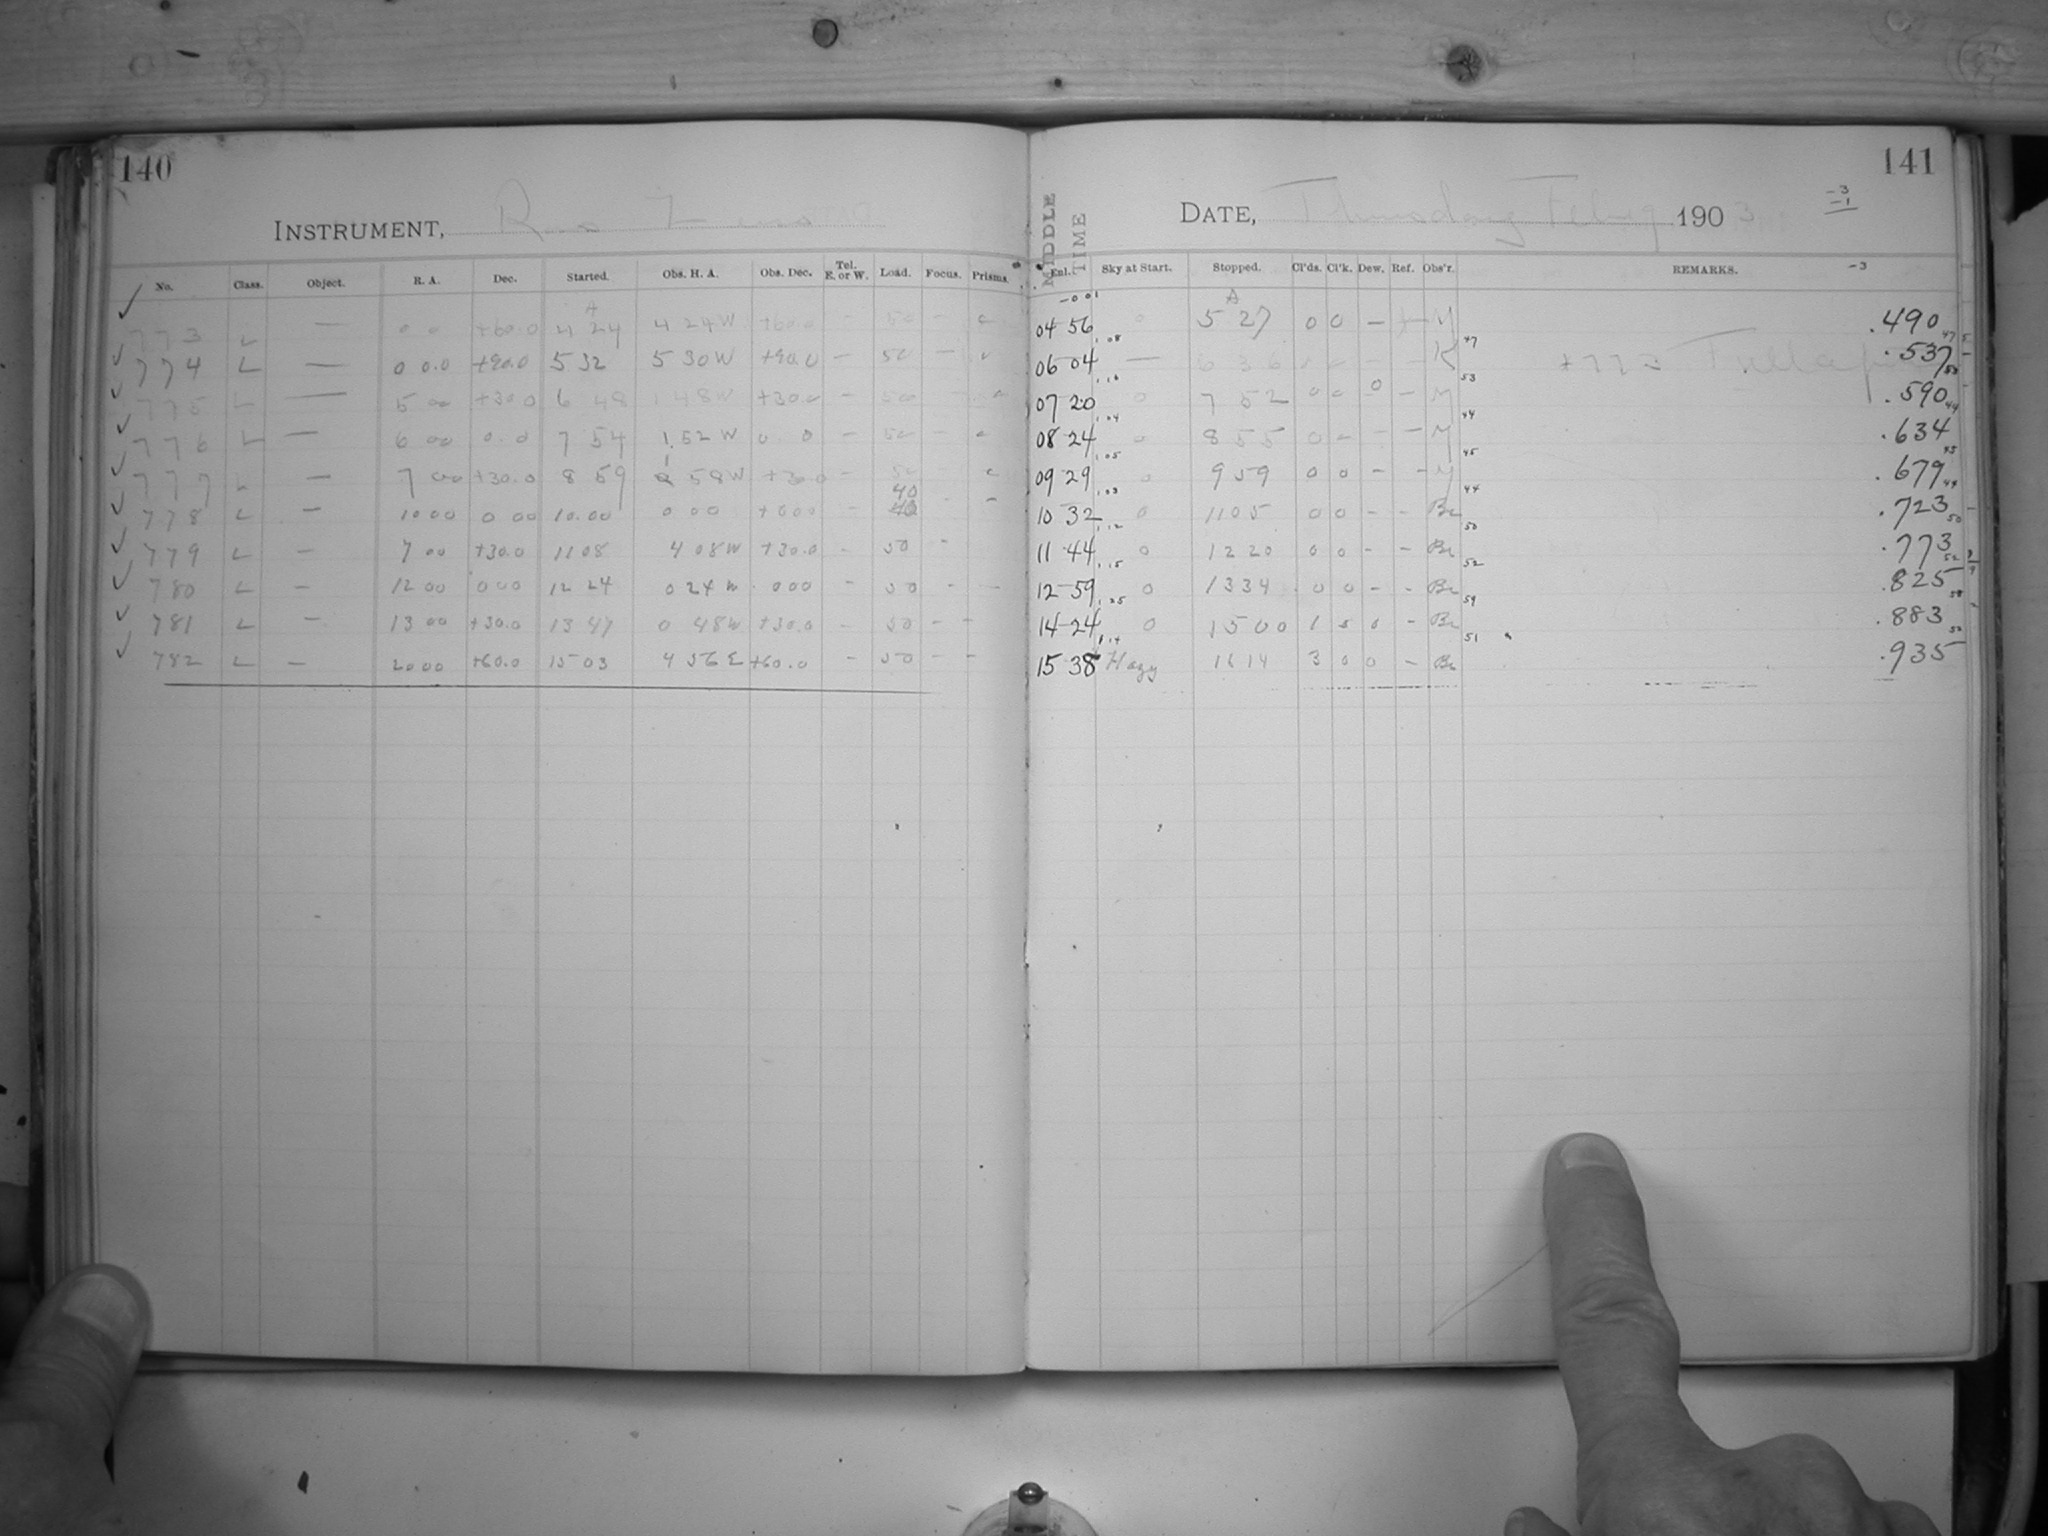 140
141
INSTRUMENT,
DATE, Thursday Feb 1903
-3
-1
MIDDLE TIME
No. Class. Object. R. A. Dec. Started. Obs. H. A. Obs. Dec. Tel. E. or W. Load. Focus. Prisms. Enl. Sky at Start. Stopped. Cl'ds. Cl'k. Dew. Ref. Obs'r. REMARKS. -3
773 L — 0 0 +60.0 4 24 4 24 W +60.0 – 50 – 04 56 0 5 27 0 0 – M .490
774 L — 0 0.0 +90.0 5 32 5 30 W +90.0 – 50 – 06 04 — 6 36 K .537
775 L — 5 00 +30.0 6 48 1 48 W +30.0 – 50 – 07 20 0 7 52 0 0 0 – M .590
776 L — 6 00 0.0 7 54 1 52 W 0 0 – 50 – 08 24 0 8 55 0 – – – M .634
777 L — 7 00 +30.0 8 59 1 58 W +30.0 – 50 09 29 0 9 59 0 0 – – M .679
778 L – 10 00 0 00 10.00 0 00 +000 – 40 – – 10 32 0 11 05 0 0 – – Br .723
779 L – 7 00 +30.0 11 08 4 08 W +30.0 – 50 – 11 44 0 12 20 0 0 – – Br .773
780 L – 12 00 000 12 24 0 24 W 000 – 50 – – 12 59 0 13 34 0 0 – – Br .825
781 L – 13 00 +30.0 13 47 0 48 W +30.0 – 50 – – 14 24 0 15 00 1 0 0 – Br .883
782 L – 20 00 +60.0 15 03 4 56 E +60.0 – 50 – – 15 38 Hazy 16 14 3 0 0 – Br .935